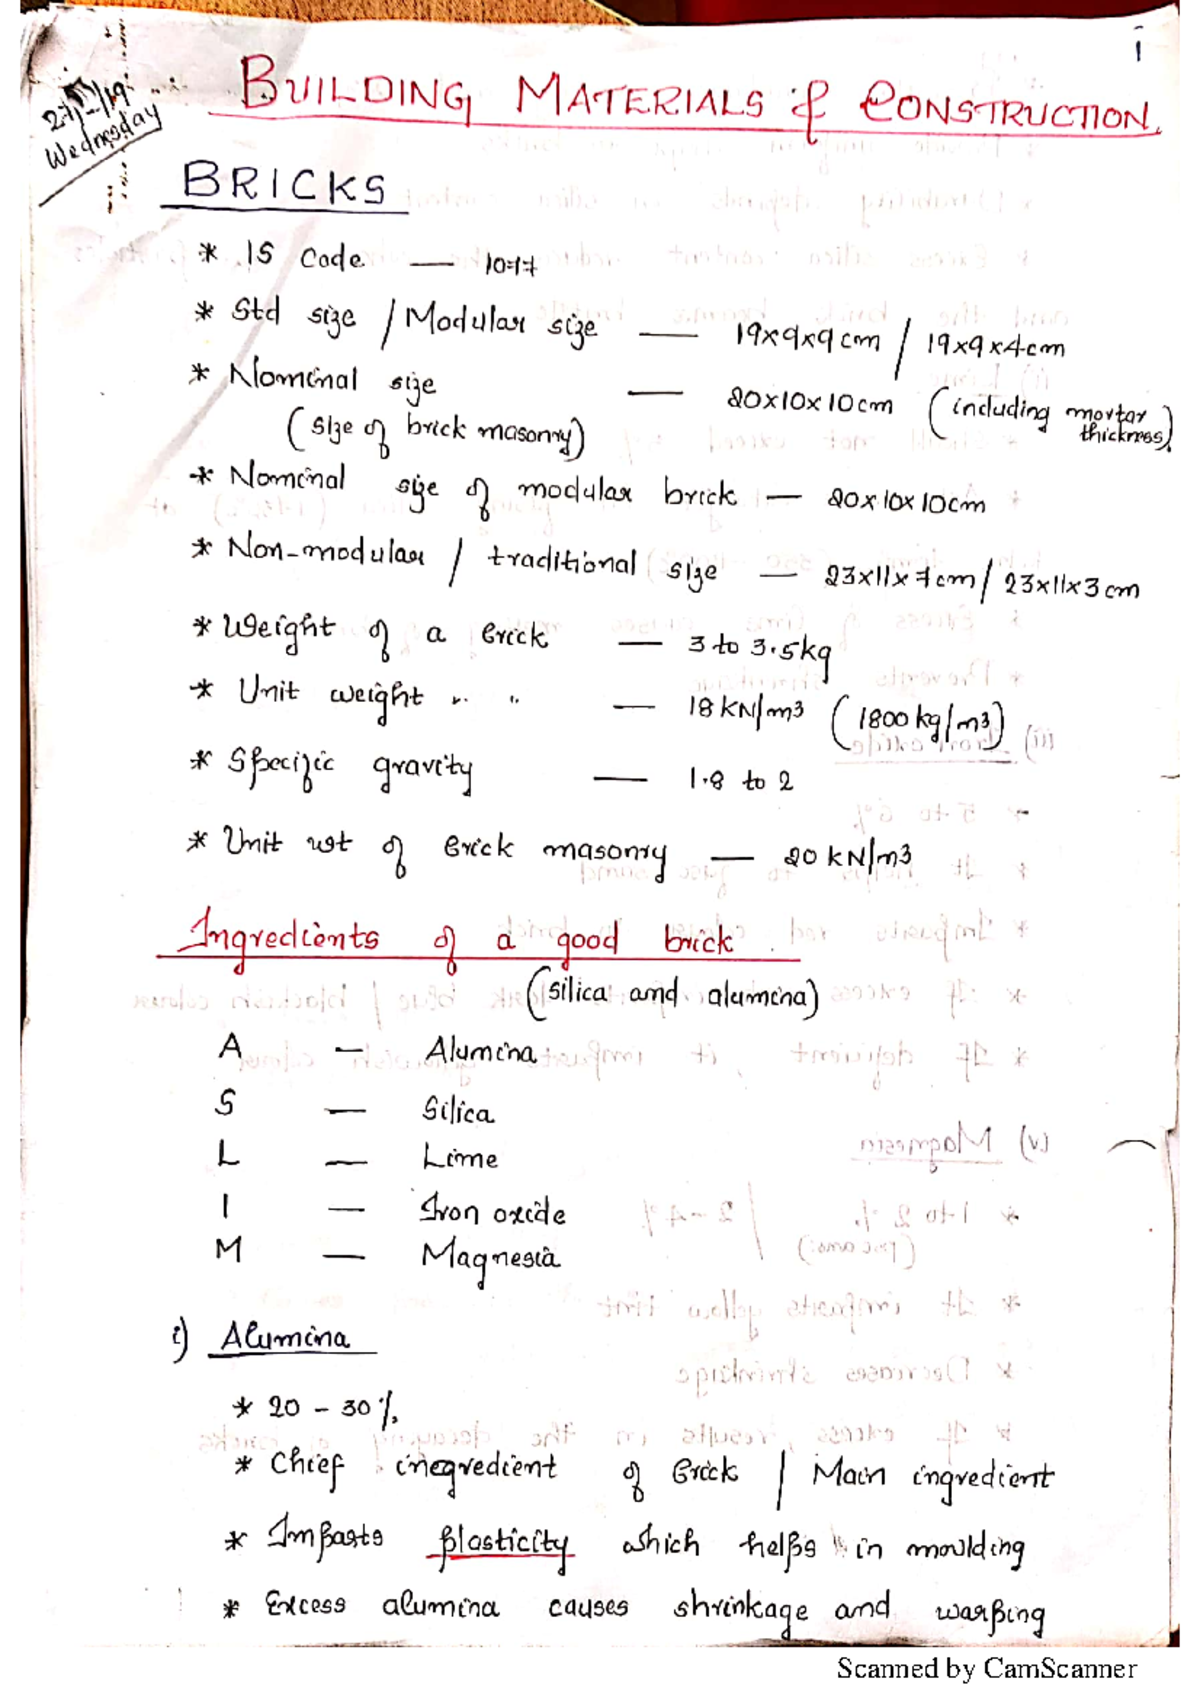 1
27/2/19
Wednesday
BUILDING MATERIALS & CONSTRUCTION.
BRICKS
* IS Code — 1077
* Std size / Modular size — 19x9x9cm / 19x9x4cm
* Nominal size — 20x10x10cm (including mortar thickness)
(size of brick masonry)
* Nominal size of modular brick — 20x10x10cm
* Non-modular / traditional size — 23x11x7cm / 23x11x3cm
* Weight of a brick — 3 to 3.5kg
* Unit weight " " — 18 KN/m3 (1800 kg/m3)
* Specific gravity — 1.8 to 2
* Unit wt of brick masonry — 20 KN/m3
Ingredients of a good brick
(silica and alumina)
A — Alumina
S — Silica
L — Lime
I — Iron oxide
M — Magnesia
i) Alumina
* 20 - 30%.
* Chief inegredient of brick / Main ingredient
* Imparts plasticity which helps in moulding
* Excess alumina causes shrinkage and warping
Scanned by CamScanner